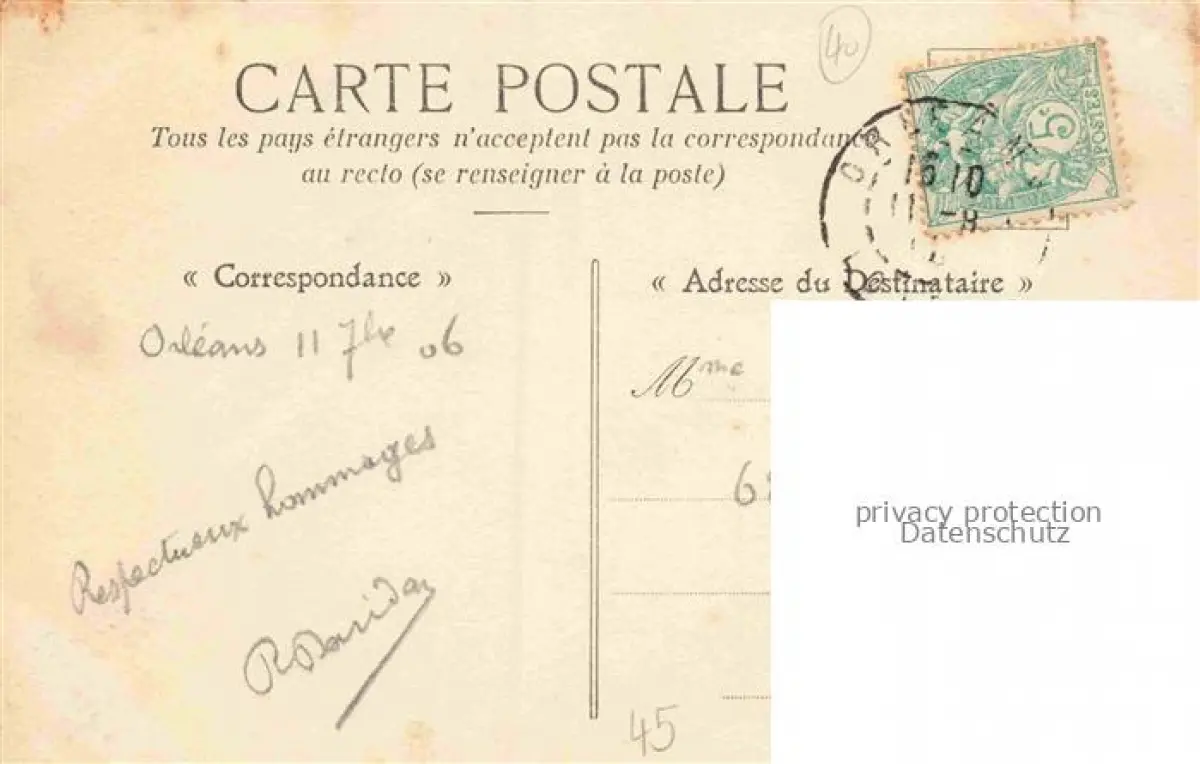 40
CARTE POSTALE
Tous les pays étrangers n'acceptent pas la correspondance
au recto (se renseigner à la poste)
5c
POSTES
16 10
11 -8
« Correspondance »
« Adresse du Destinataire »
Orléans 11 7bre 06
Mme
Respectueux hommages
6
privacy protection
Datenschutz
45